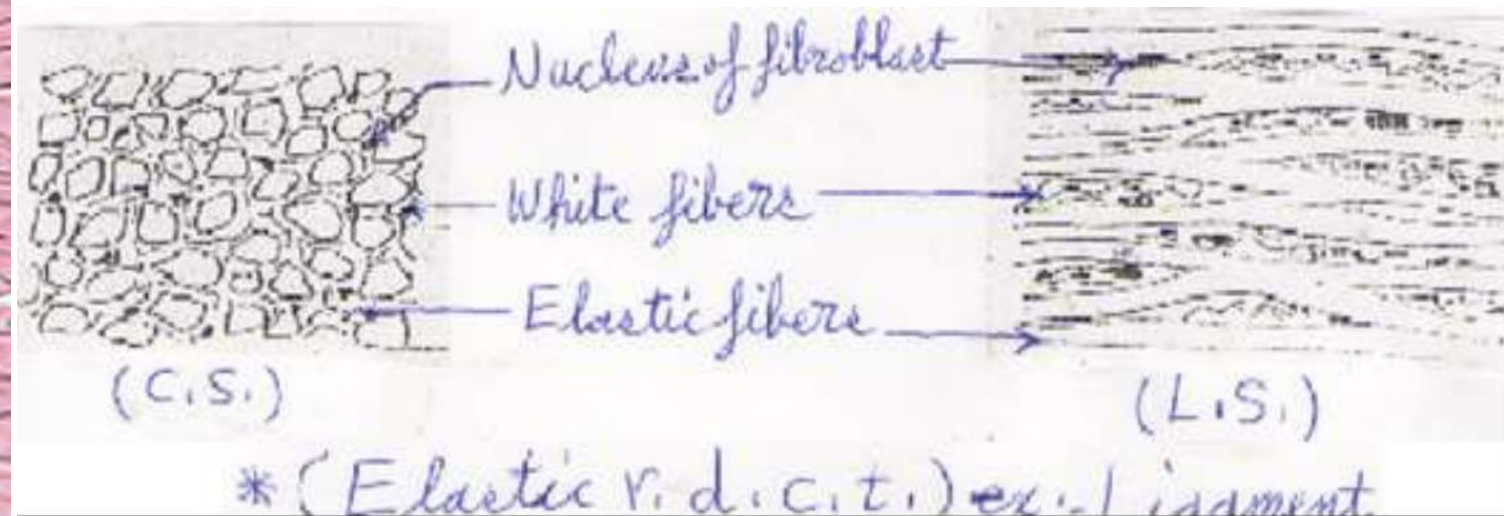 Nucleus of fibroblast
White fibers
Elastic fibers
(C.S.)
(L.S.)
* (Elastic r.d.c.t.) ex. Ligament